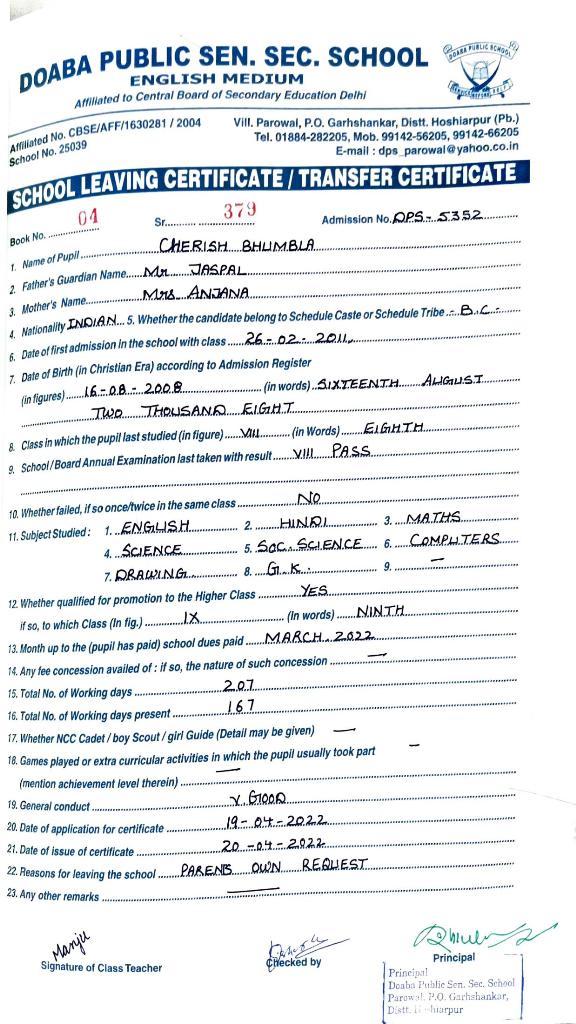 DOABA PUBLIC SEN. SEC. SCHOOL
DOABA PUBLIC SCHOOL
ENGLISH MEDIUM
Affiliated to Central Board of Secondary Education Delhi
Affiliated No. CBSE/AFF/1630281 / 2004
School No. 25039
Vill. Parowal, P.O. Garhshankar, Distt. Hoshiarpur (Pb.)
Tel. 01884-282205, Mob. 99142-56205, 99142-66205
E-mail : dps_parowal@yahoo.co.in
SCHOOL LEAVING CERTIFICATE / TRANSFER CERTIFICATE
Book No. 04 Sr. 379 Admission No. DPS-5352
1. Name of Pupil CHERISH BHUMBLA
2. Father's Guardian Name Mr JASPAL
3. Mother's Name Mrs ANJANA
4. Nationality INDIAN 5. Whether the candidate belong to Schedule Caste or Schedule Tribe - B.C.-
6. Date of first admission in the school with class 26-02-2011
7. Date of Birth (in Christian Era) according to Admission Register
(in figures) 16-08-2008 (in words) SIXTEENTH AUGUST
TWO THOUSAND EIGHT
8. Class in which the pupil last studied (in figure) VIII (in Words) EIGHTH
9. School / Board Annual Examination last taken with result VIII PASS
10. Whether failed, if so once/twice in the same class NO
11. Subject Studied : 1. ENGLISH 2. HINDI 3. MATHS
4. SCIENCE 5. SOC. SCIENCE 6. COMPUTERS
7. DRAWING 8. G.K. 9. -
12. Whether qualified for promotion to the Higher Class YES
if so, to which Class (In fig.) IX (In words) NINTH
13. Month up to the (pupil has paid) school dues paid MARCH. 2022
14. Any fee concession availed of : if so, the nature of such concession -
15. Total No. of Working days 207
16. Total No. of Working days present 167
17. Whether NCC Cadet / boy Scout / girl Guide (Detail may be given) -
18. Games played or extra curricular activities in which the pupil usually took part -
(mention achievement level therein) -
19. General conduct V. GOOD
20. Date of application for certificate 19-04-2022
21. Date of issue of certificate 20-04-2022
22. Reasons for leaving the school PARENTS OWN REQUEST
23. Any other remarks -
Manju
Signature of Class Teacher
Checked by
Principal
Principal
Doaba Public Sen. Sec. School
Parowal, P.O. Garhshankar,
Distt. Hoshiarpur